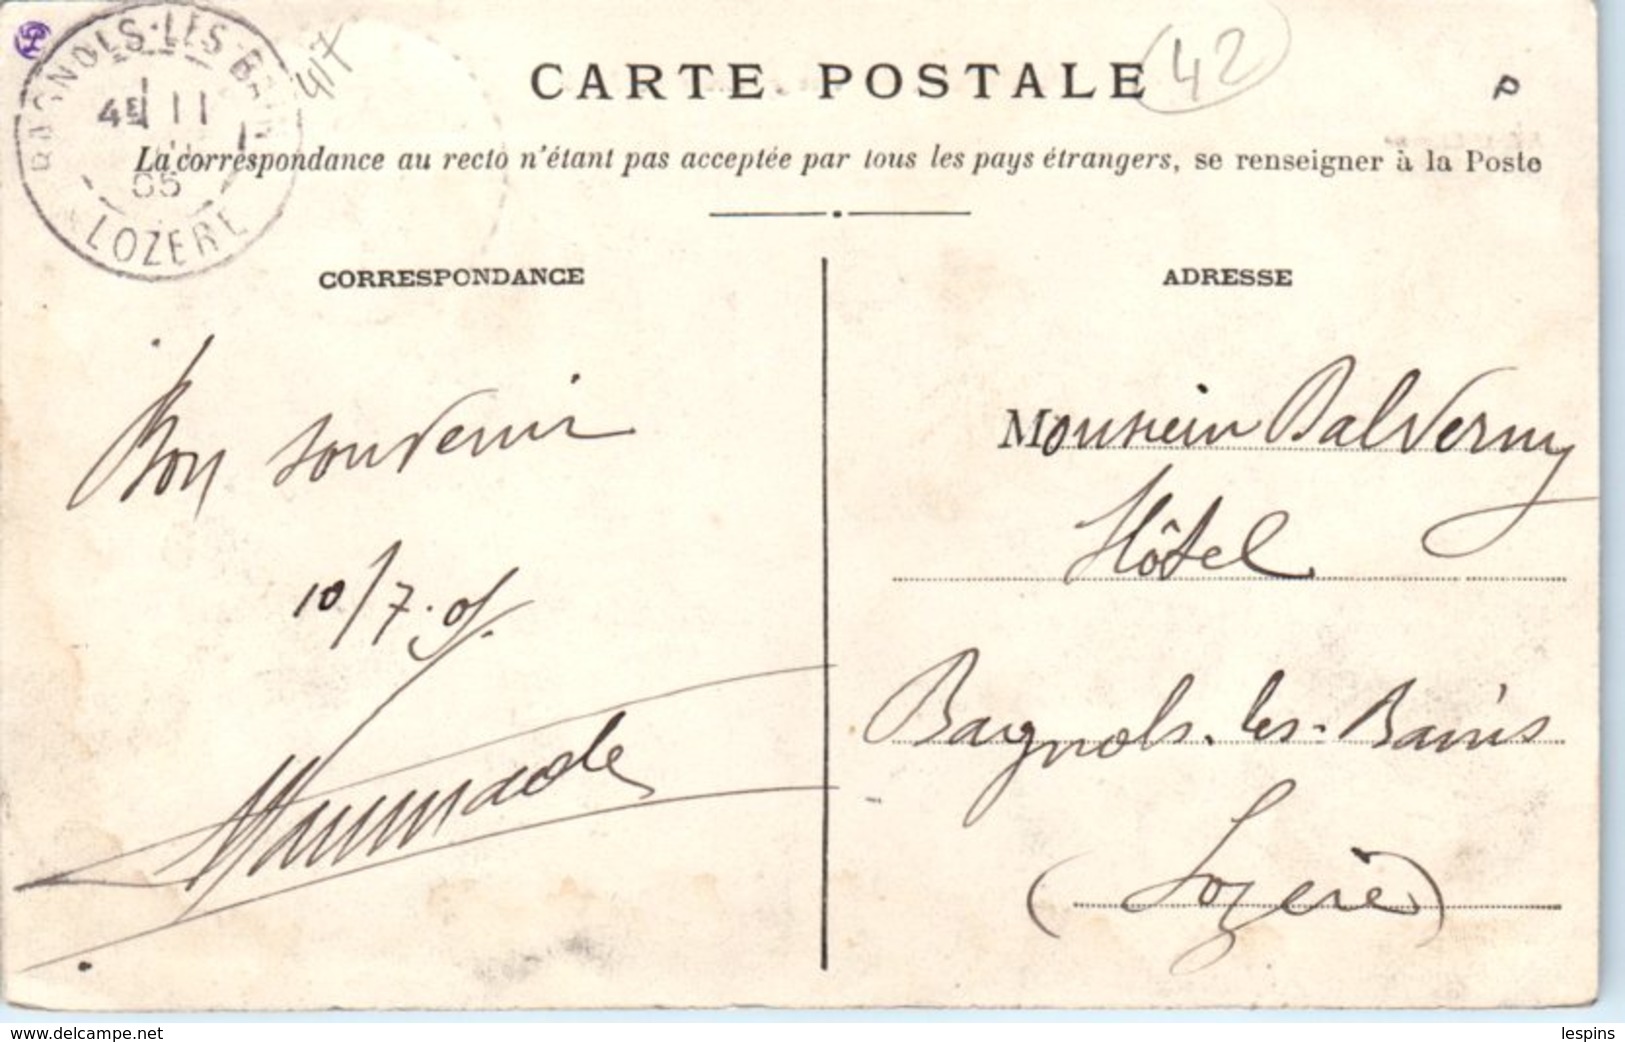 BAGNOLS-LES-BAINS
4E 11
05
LOZERE
417
CARTE POSTALE
42
P
La correspondance au recto n'étant pas acceptée par tous les pays étrangers, se renseigner à la Poste
CORRESPONDANCE
Bon souvenir
10/7.05
ADRESSE
Monsieur Balverny
Hôtel
Bagnols-les-Bains
(Lozère)
www.delcampe.net
lespins